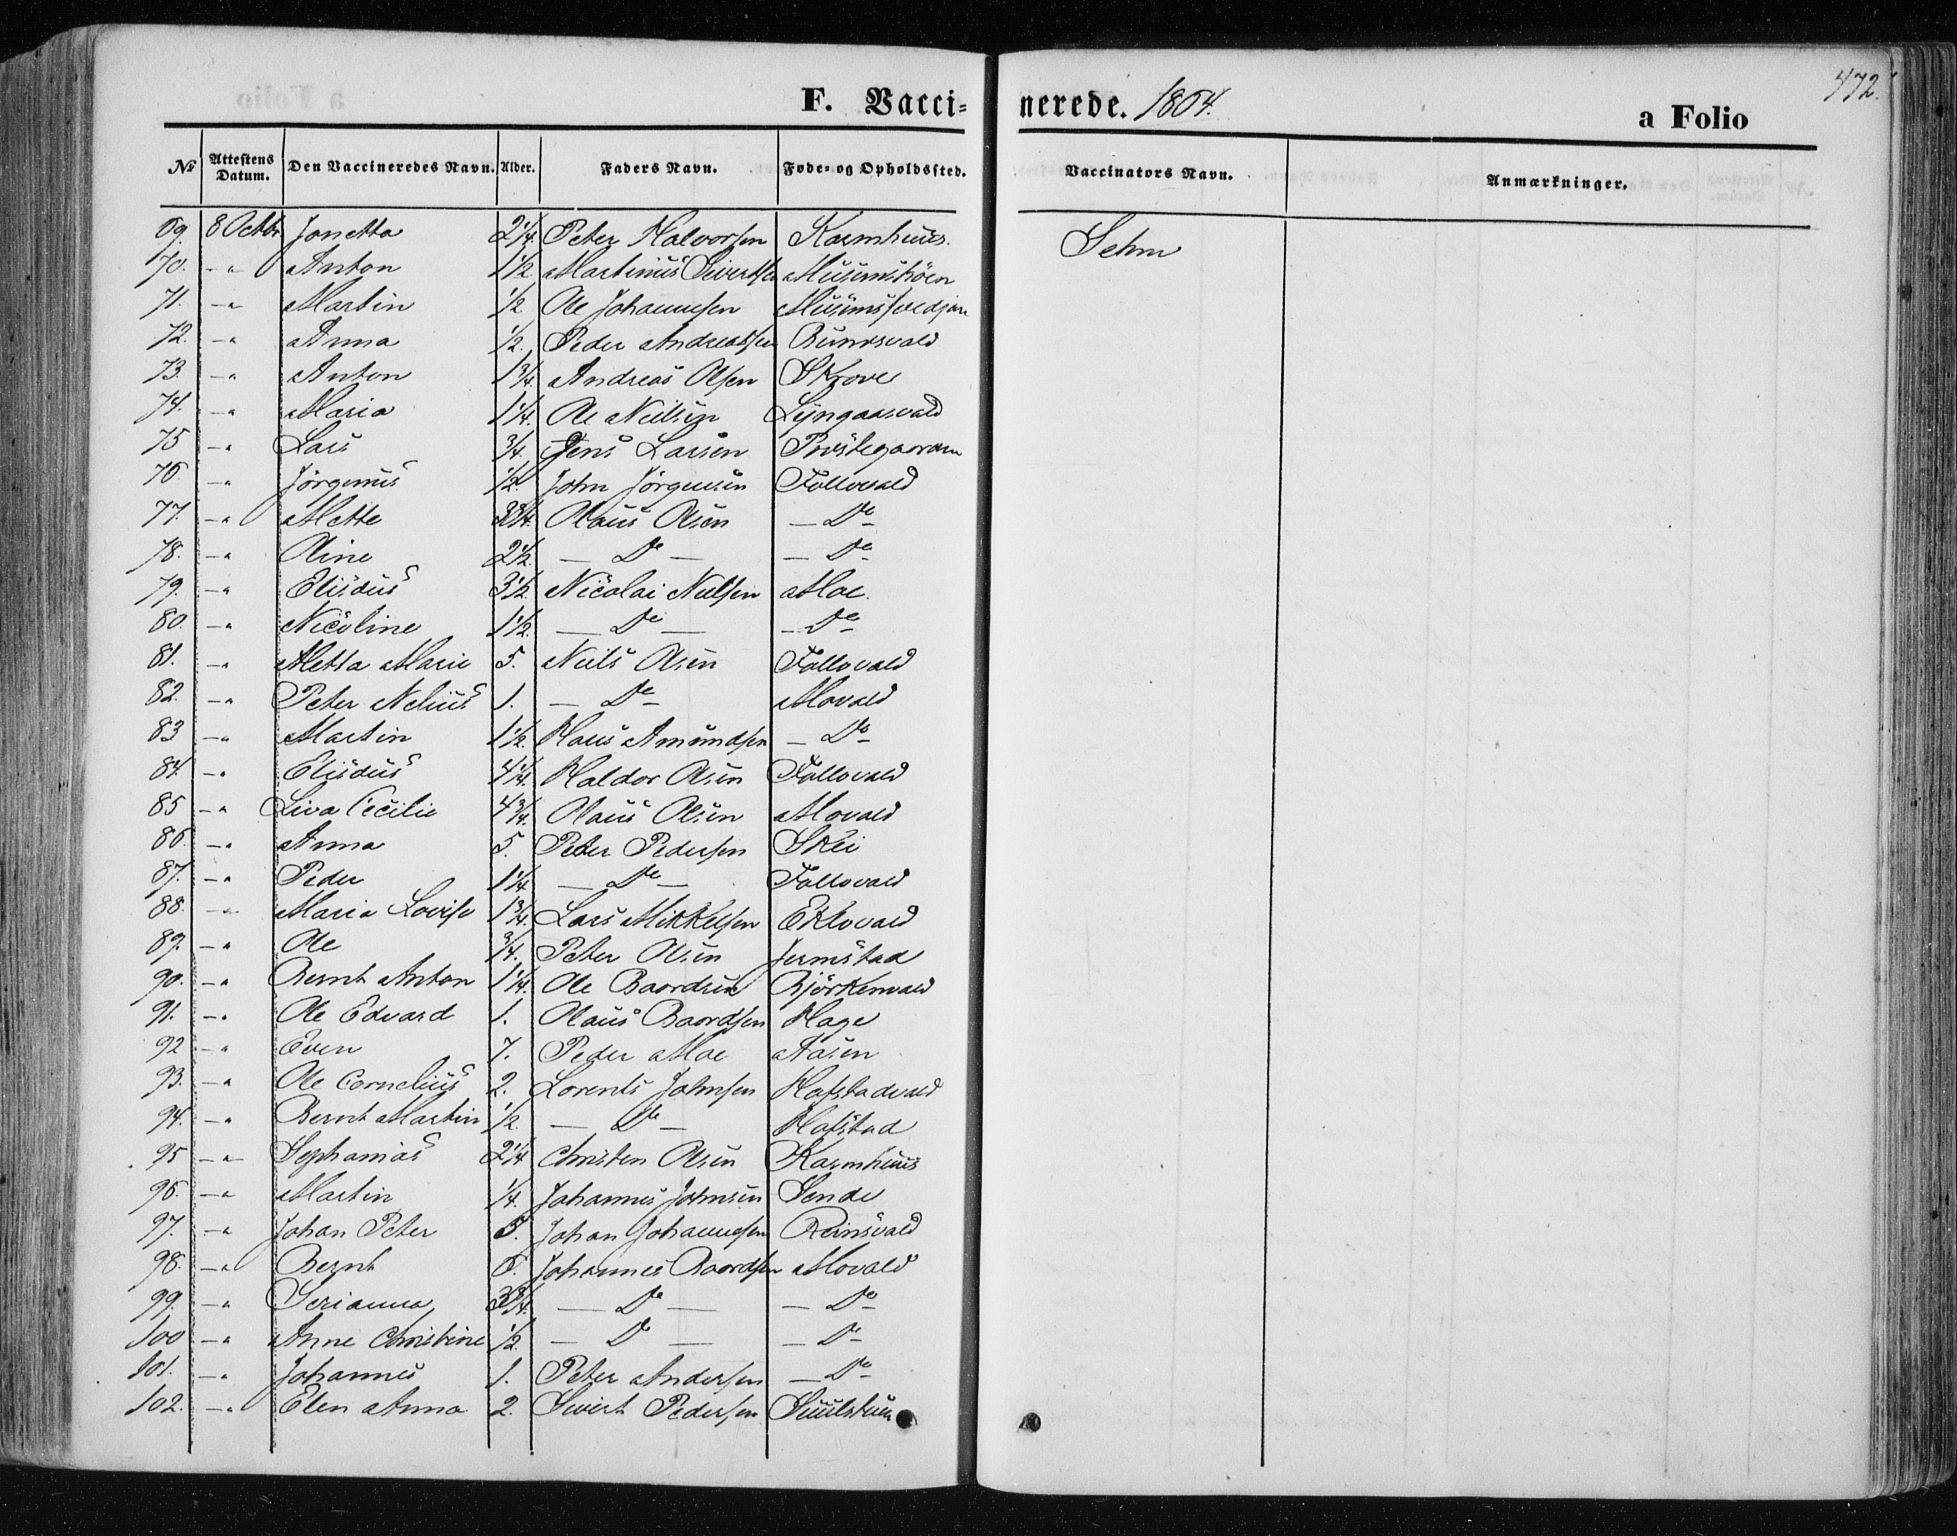 472.
F. Vacci=
nerede. 1864.
a Folio
№ Attestens Datum. Den Vaccineredes Navn. Alder. Faders Navn. Føde= og Opholdssted. Vaccinators Navn. Anmærkninger.
69. 8 Octbr Jonetta 2 1/4. Peter Halvorsen Karmhuus. Sehm
70. -" Anton 1 1/2 Martinus Sivertsen
71. -" Martin 1/2 Ole Johannesen
72. -" Anna 1/2. Peder Andreassen
73. -" Anton 1 3/4. Andreas Olsen Skrove
74. -" Maria 1 1/4. Ole Nielsen Lyngaasvald
75 -" Lars 3/4. Jens Larsen Præstegaarden
76. -" Jörginus 1/2. John Jörgensen Follovald
77. -" Mette 3 3/4. Olaus Olsen - Do -
78. -" Oline 2 1/2. - Do - - Do -
79. -" Elisæus 3 1/2. Nicolai Nielsen Moe.
80. -" Nicoline 1 1/2. - Do - - Do -
81. -" Metta Marie 5. Niels Olsen Follovald
82. -" Peter Nelius 1. - Do - Movald
83 -" Martin 1 1/2. Claus Amundsen - Do -
84. -" Elisæus 4 1/4. Haldor Olsen Follovald
85 -" Liva Cecilie 4 3/4. Olaus Olsen Movald
86. -" Anna 5. Peter Pedersen Skei
87. -" Peder 1 1/4. - Do - Follovald
88. -" Maria Lovise 1 3/4. Lars Mikkelsen Eklovald
89. -" Ole 3/4. Peter Olsen Jermstad
90. -" Bernt Anton 1 1/4. Ole Baardsen Björkenvald
91. -" Ole Edvard 1. Olaus Baardsen Hage
92 -" Even 7. Peder Moe Aasen
93. -" Ole Cornelius 2. Lorents Johnsen Hofstadvald
94. -" Bernt Martin 1/2 - Do - Hofstad
95 -" Sephanias 2 1/4 Christen Olsen Karmhuus
96. -" Martin 1/4. Johannes Johnsen Sende
97. -" Johan Peter 5. Johan Johannesen Reinsvald
98. -" Bernt 6. Johannes Baardsen Movald
99. -" Serianna 3 3/4. - Do - - Do -
100 -" Anne Christine 1/2. - Do - - Do -
101. -" Johannes 1. Peter Andersen - Do -
102. -" Elen Anna 2. Sivert Pedersen